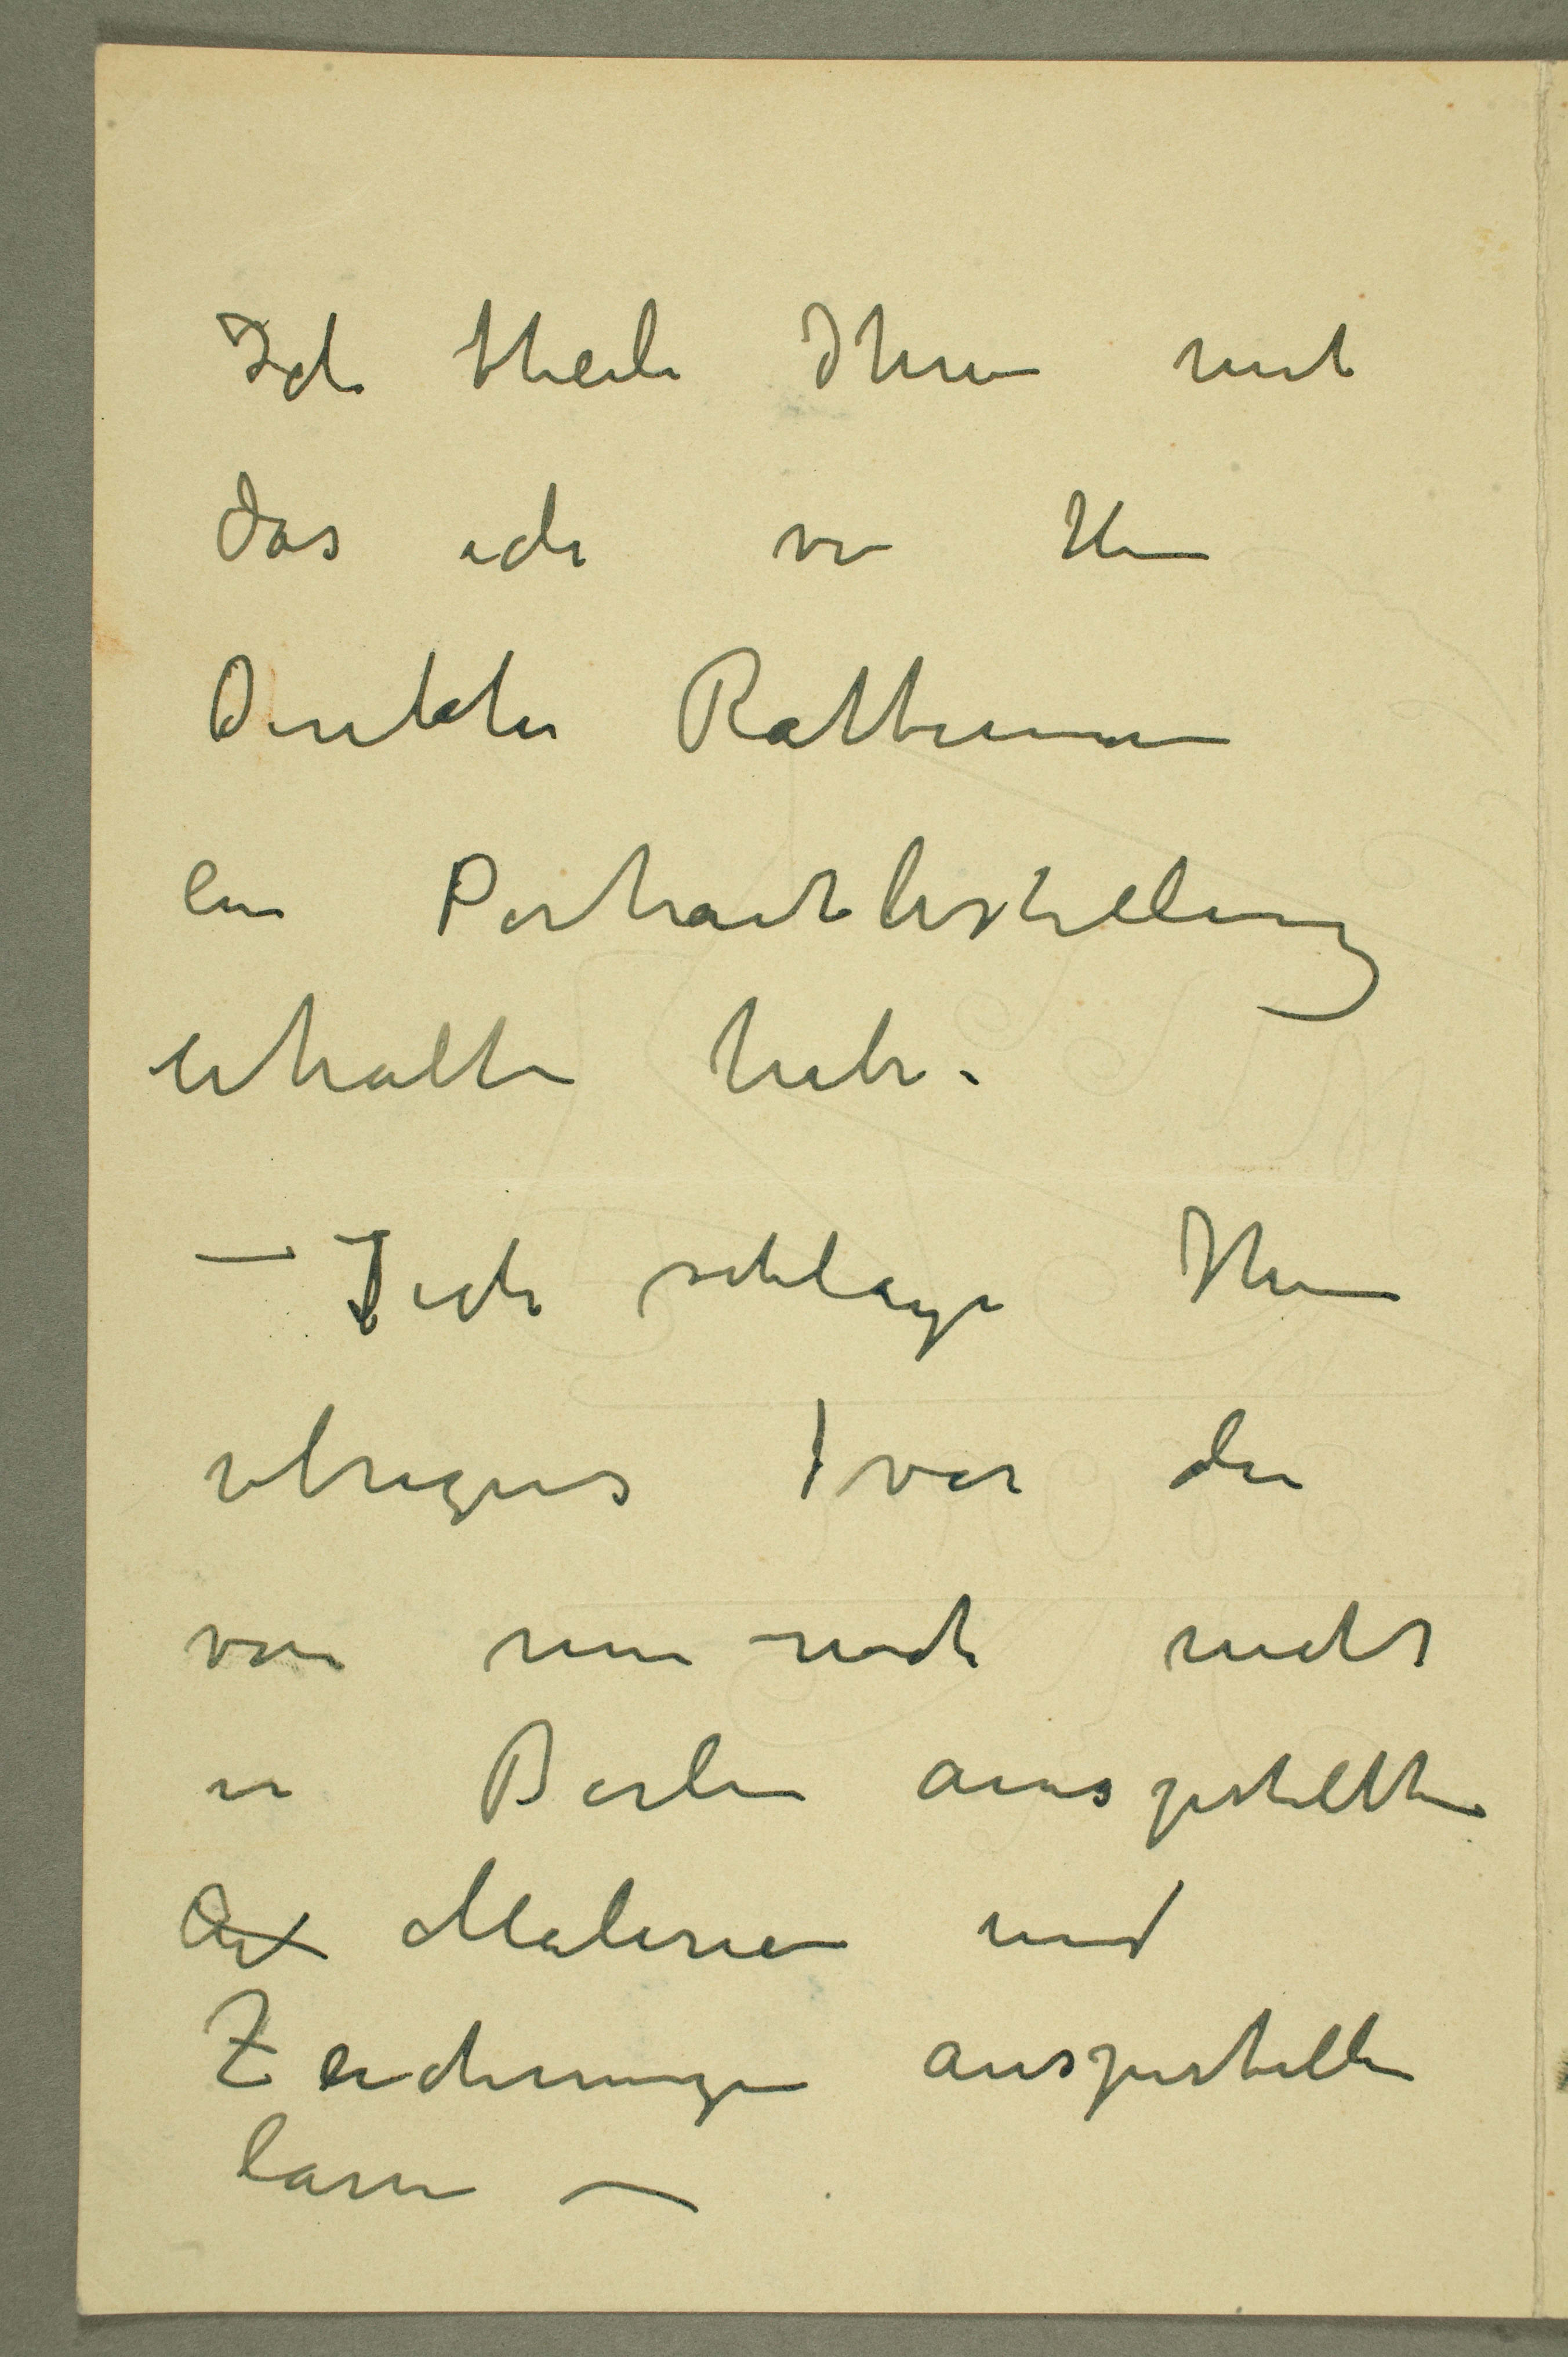 Ich theile Ihnen mit
das ich von Herrn
Direktor Rathenau
eine Portraitbestellung
erhalten habe.
— Ich schlage Ihnen
übrigens vor die
von mir noch nicht
in Berlin ausgestellten
Malereien und
Zeichnungen ausgestellt
lassen —